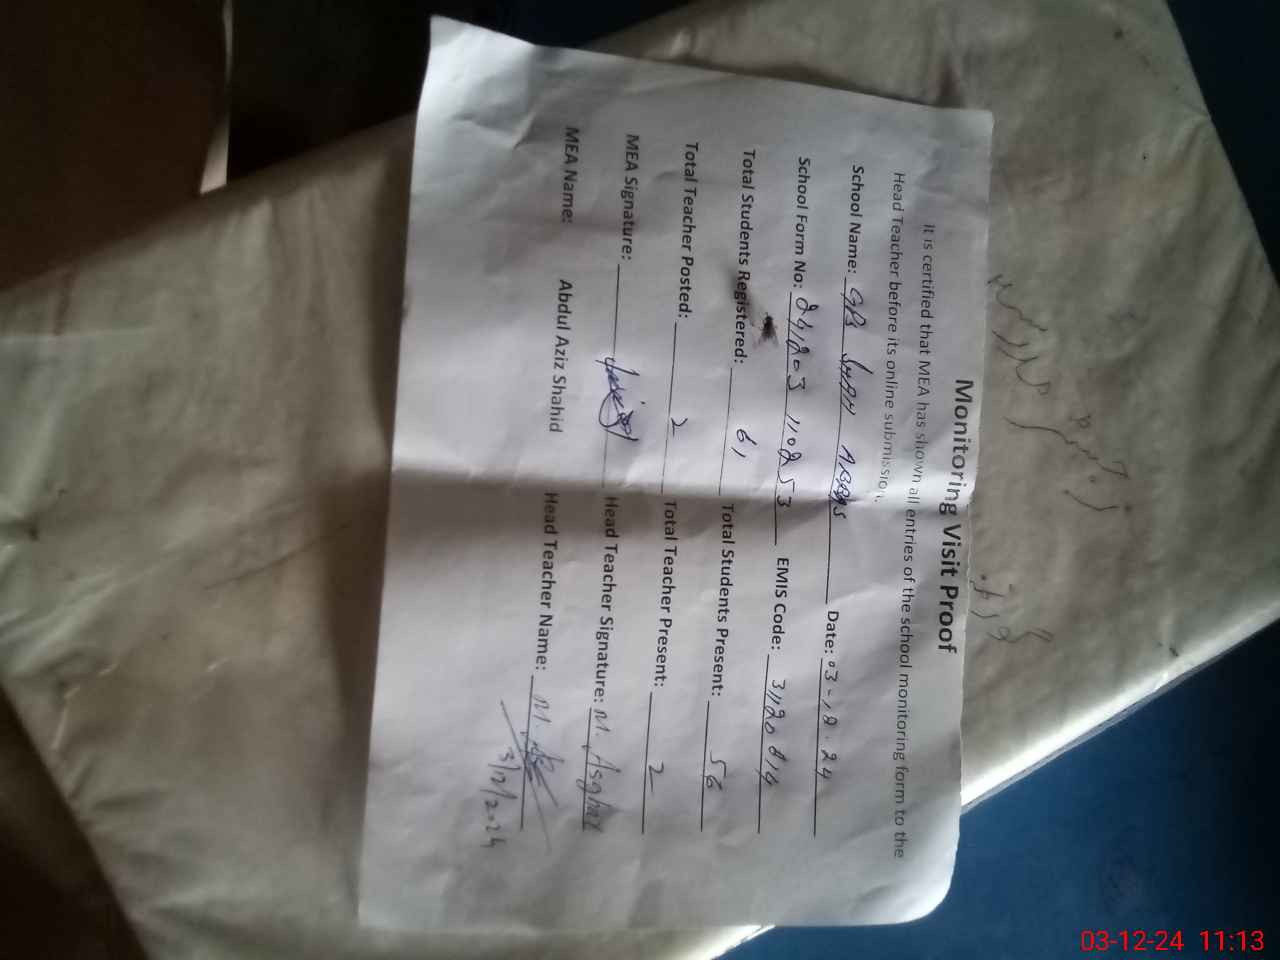 Monitoring Visit Proof
It is certified that MEA has shown all entries of the school monitoring form to the
Head Teacher before its online submission.
School Name: Date: 03-12-24
School Form No: 241203 110253 EMIS Code: 31120814
Total Students Registered: 61 Total Students Present: 56
Total Teacher Posted: 2 Total Teacher Present: 2
MEA Signature: Head Teacher Signature: M. Asghar
MEA Name: Abdul Aziz Shahid Head Teacher Name: M.
3/12/2024
03-12-24 11:13